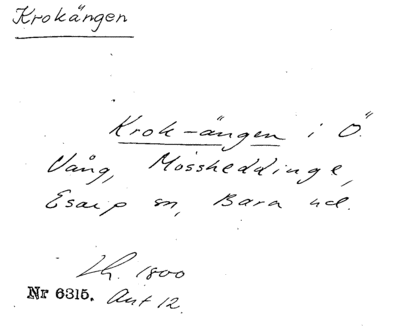 Krokängen
Krok-ängen i Ö.
Vång, Mossheddinge,
Esarp sn, Bara hd.
Lh. 1800
Nr 6315. Akt 12.